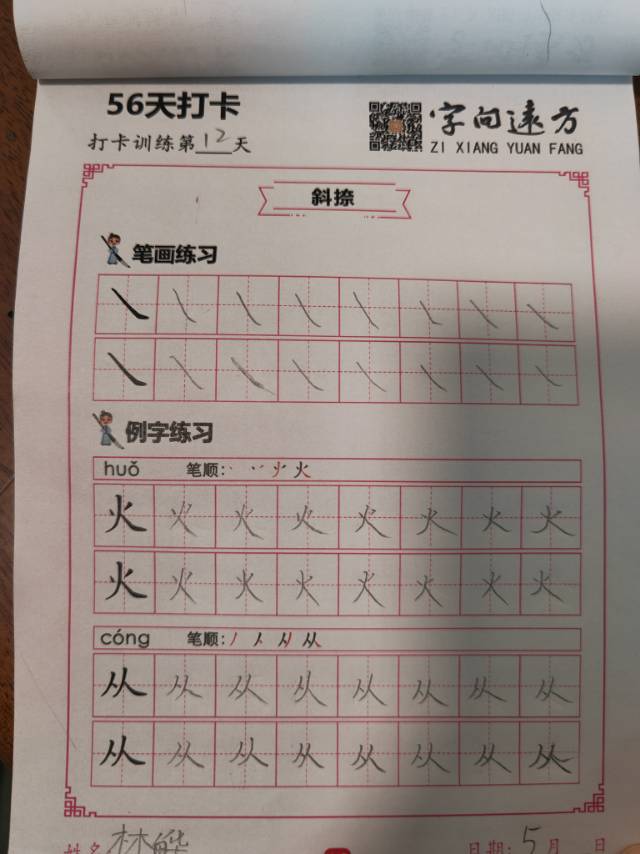 56天打卡
打卡训练第12天
字向遠方
ZI XIANG YUAN FANG
斜捺
笔画练习
㇏ ㇏ ㇏ ㇏ ㇏ ㇏ ㇏ ㇏
㇏ ㇏ ㇏ ㇏ ㇏ ㇏ ㇏ ㇏
例字练习
huǒ 笔顺: 火
火 火 火 火 火 火 火 火
火 火 火 火 火 火 火 火
cóng 笔顺: 从
从 从 从 从 从 从 从 从
从 从 从 从 从 从 从 从
姓名 林晔 日期: 5月 日